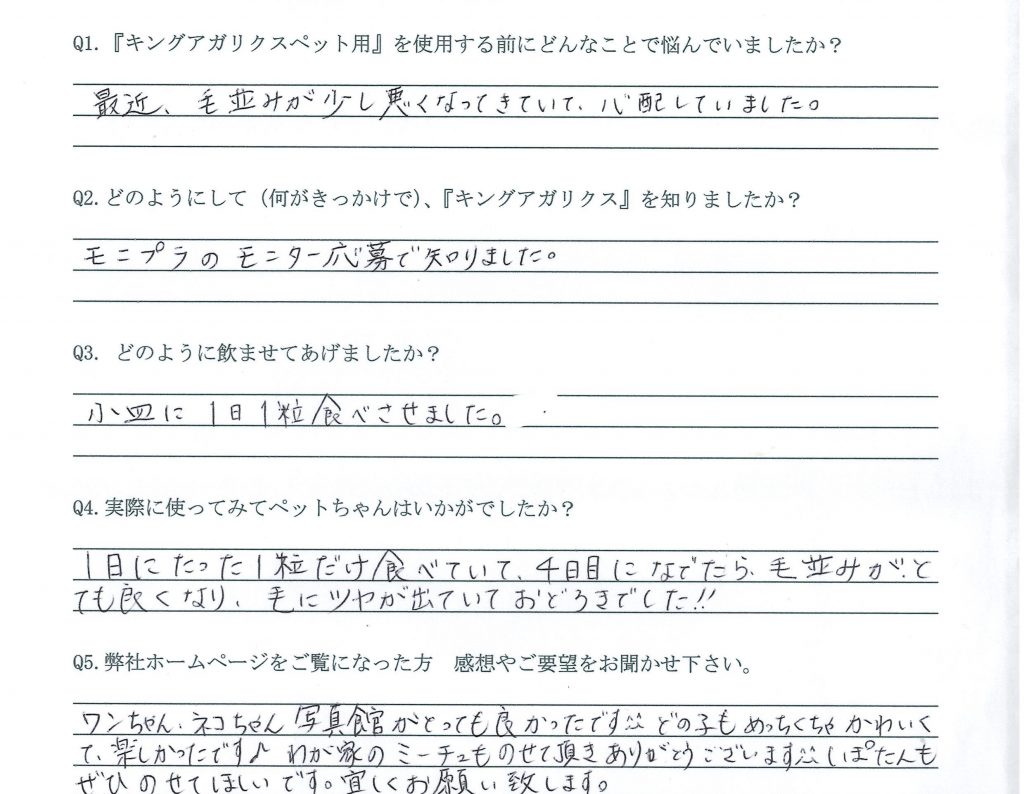 Q1.『キングアガリクスペット用』を使用する前にどんなことで悩んでいましたか？
最近、毛並みが少し悪くなってきていて、心配していました。
Q2.どのようにして（何がきっかけで）、『キングアガリクス』を知りましたか？
モニプラのモニター応募で知りました。
Q3. どのように飲ませてあげましたか？
小皿に1日1粒食べさせました。
Q4.実際に使ってみてペットちゃんはいかがでしたか？
1日にたった1粒だけ食べていて、4日目になでたら、毛並みが、と
ても良くなり、毛にツヤが出ていておどろきでした!!
Q5.弊社ホームページをご覧になった方　感想やご要望をお聞かせ下さい。
ワンちゃん、ネコちゃん写真館がとっても良かったです^^どの子もめっちくちゃかわいく
て、楽しかったです♪ わが家のミーチュものせて頂きありがとうございます^^しぽたんも
ぜひのせてほしいです。宜しくお願い致します。